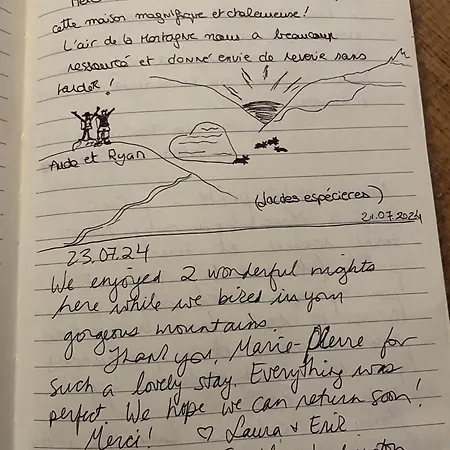 cette maison magnifique et chaleureuse !
L'air de la Montagne nous a beaucoup
ressourcé et donné envie de revenir sans
tarder !
Aude et Ryan
(Jacdes espécieres)
21.07.2024
23.07.24
We enjoyed 2 wonderful nights
here while we biked in your
gorgeous mountains.
Thank you, Marie-Pierre for
such a lovely stay. Everything was
perfect. We hope we can return soon!
Merci! ♡ Laura + Erik